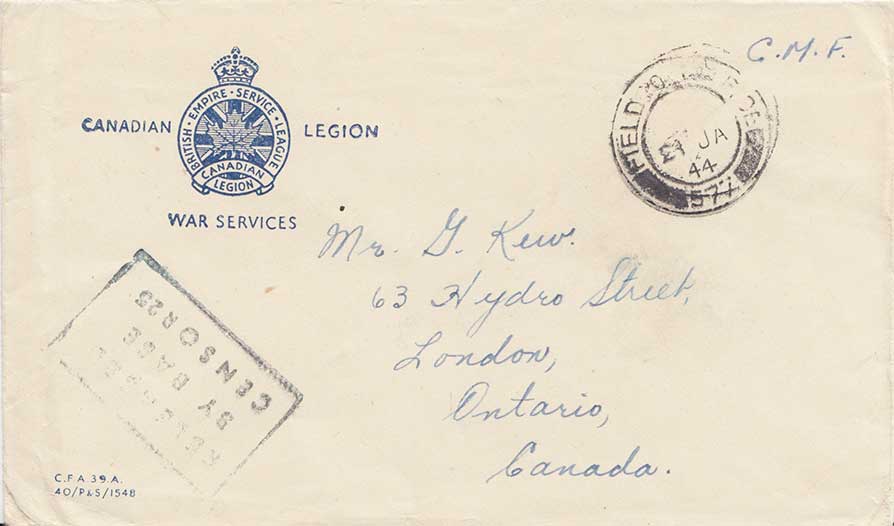 C.M.F.
FIELD POST OFFICE
JA
44
577
CANADIAN LEGION
BRITISH · EMPIRE · SERVICE · LEAGUE
CANADIAN
LEGION
WAR SERVICES
Mr. G. Kew.
63 Hydro Street,
London,
Ontario,
Canada.
RELEASED
BY BASE
CENSOR 25
C.F.A.39.A.
40/P&S/1548